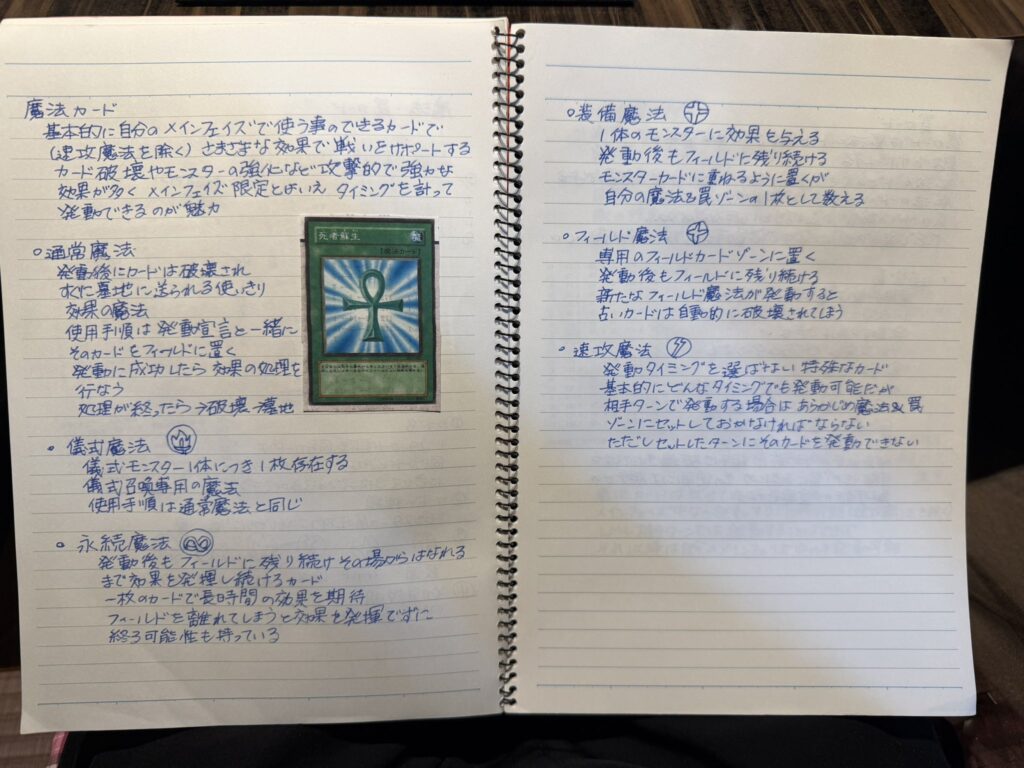 魔法カード
基本的に自分のメインフェイズで使う事のできるカードで
(速攻魔法を除く)さまざまな効果で戦いをサポートする
カード破壊やモンスターの強化など攻撃的で強力な
効果が多くメインフェイズ限定とはいえタイミングを計って
発動できるのが魅力
○通常魔法
発動後にカードは破壊され
すぐに墓地に送られる使いきり
効果の魔法
使用手順は発動宣言と一緒に
そのカードをフィールドに置く
発動に成功したら効果の処理を
行なう
処理が終ったら→破壊→墓地
死者蘇生
[魔法カード]
○儀式魔法
儀式モンスター1体につき1枚存在する
儀式召喚専用の魔法
使用手順は通常魔法と同じ
○永続魔法
発動後もフィールドに残り続けその場からはなれる
まで効果を発揮し続けるカード
一枚のカードで長時間の効果を期待
フィールドを離れてしまうと効果を発揮できずに
終る可能性も持っている
○装備魔法
1体のモンスターに効果を与える
発動後もフィールドに残り続ける
モンスターカードに重ねるように置くが
自分の魔法&罠ゾーンの1枚として数える
○フィールド魔法
専用のフィールドカードゾーンに置く
発動後もフィールドに残り続ける
新たなフィールド魔法が発動すると
古いカードは自動的に破壊されてしまう
○速攻魔法
発動タイミングを選ばない特殊なカード
基本的にどんなタイミングでも発動可能だが
相手ターンで発動する場合はあらかじめ魔法&罠
ゾーンにセットしておかなければならない
ただしセットしたターンにそのカードを発動できない